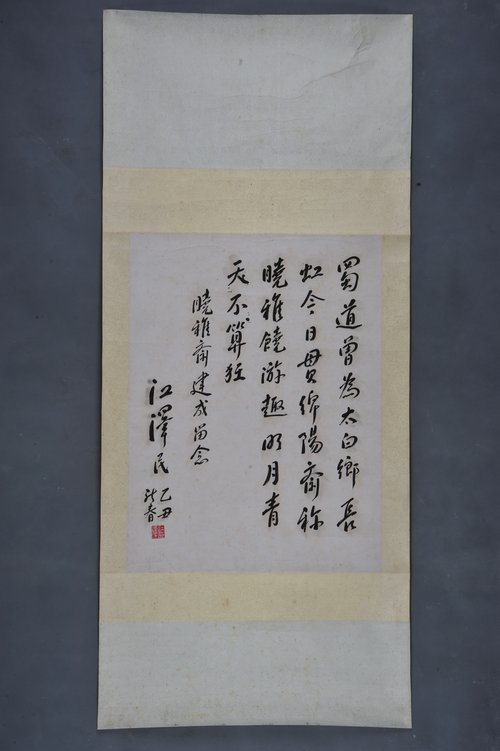 蜀道曾為太白鄉長
虹今日貫綿陽齋称
曉雅饒游趣明月青
天不算狂
曉雅齋建成留念
江澤民
乙丑
新春